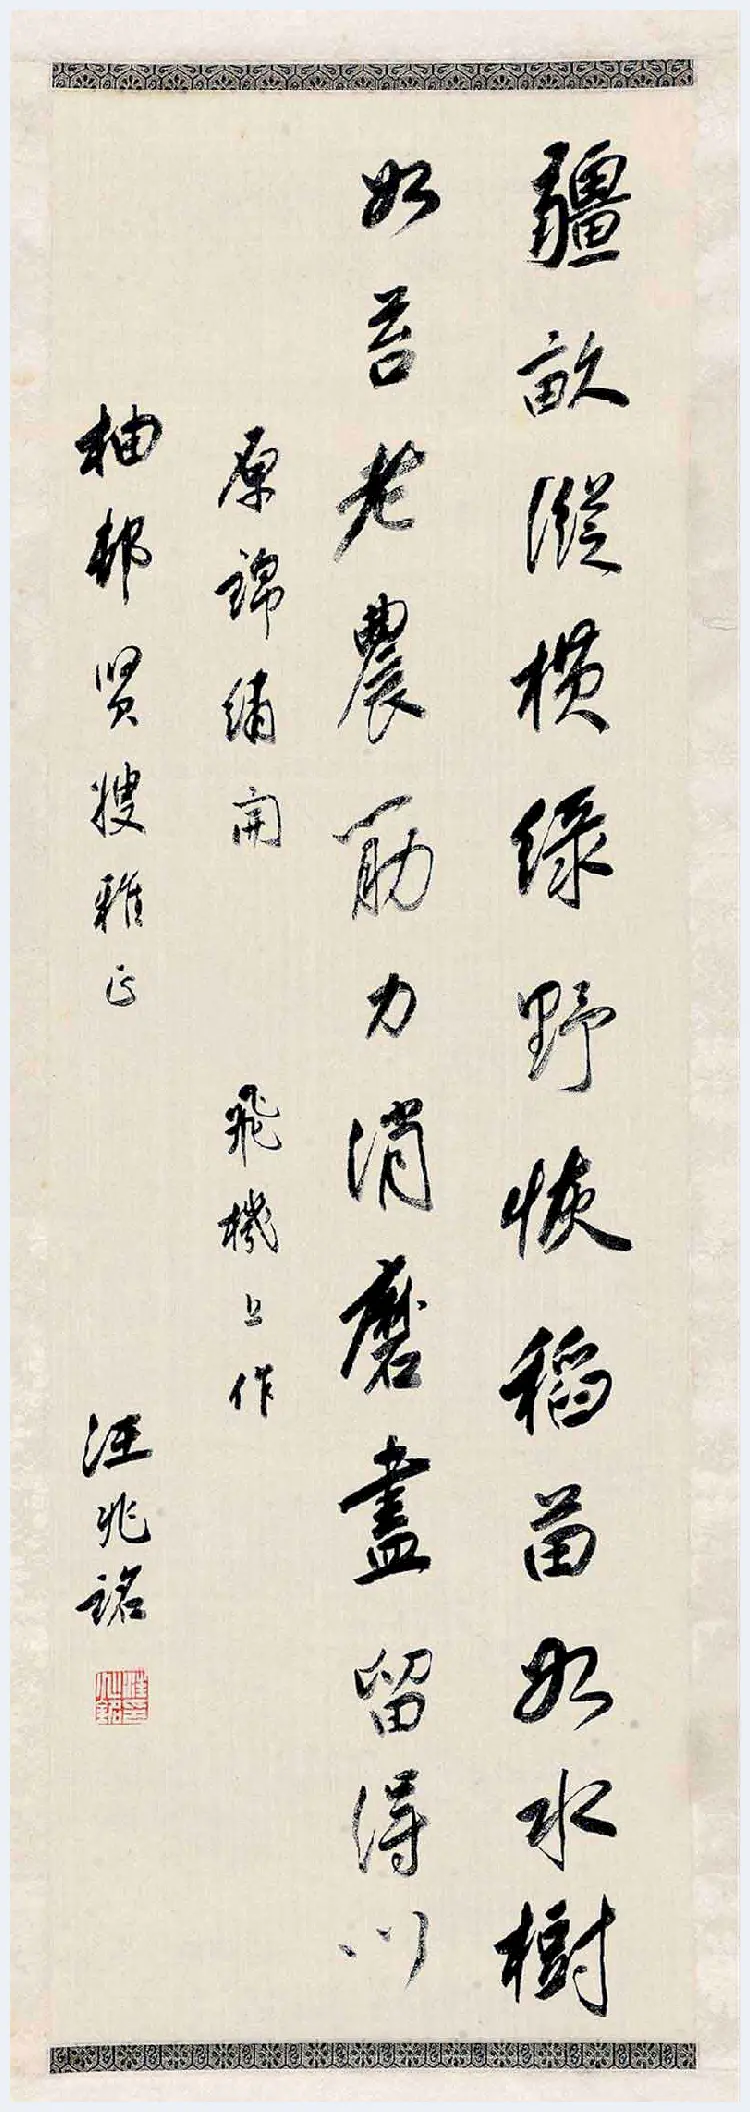 疆畝縱橫綠野恢稻苗如水樹
如苔老農筋力消磨盡留得川
原錦繡開 飛機上作
柚邨賢嫂雅正 汪兆銘